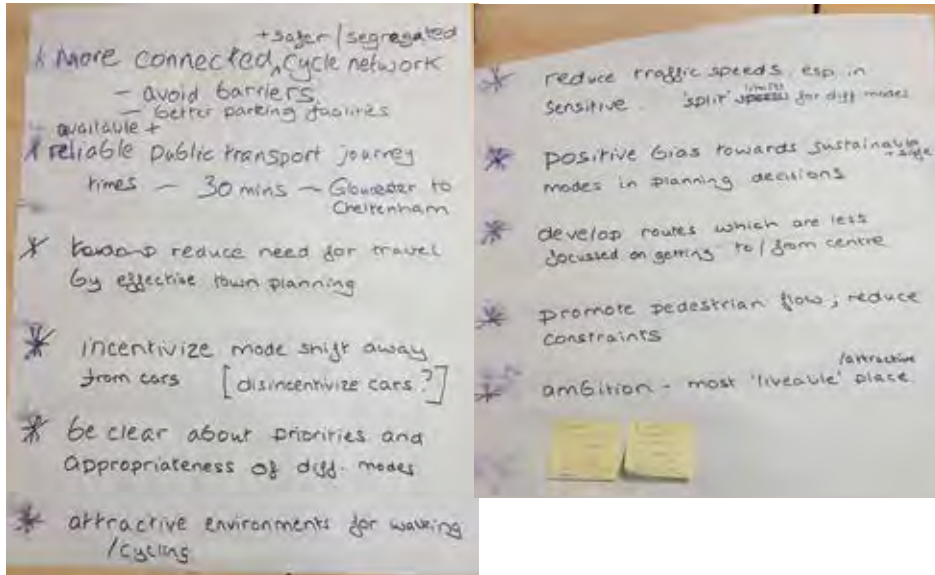 +safer/segregated
* More connected, cycle network
- avoid barriers
- better parking facilities
available +
* reliable public transport journey
times - 30 mins - Gloucester to
Cheltenham
* reduce need for travel
by effective town planning
* incentivize mode shift away
from cars [disincentivize cars?]
* be clear about priorities and
appropriateness of diff. modes
* attractive environments for walking
/cycling
* reduce traffic speeds, esp in
limits
sensitive. 'split' speeds for diff modes
* positive bias towards sustainable
modes in planning decisions
* develop routes which are less
focussed on getting to/from centre
* promote pedestrian flow; reduce
constraints
/attractive
* ambition - most 'liveable' place